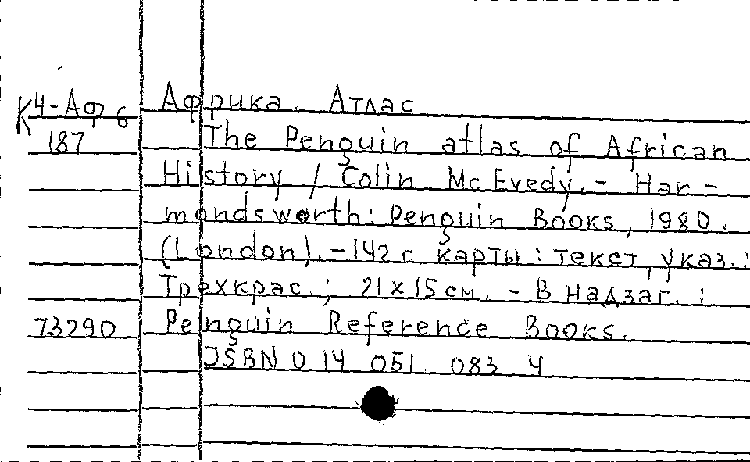 К4-Аф6 Африка. Атлас
187 The Penguin atlas of African
History / Colin McEvedy. - Har-
mondsworth: Penguin Books, 1980.
(London). - 142 с карты: текст, указ.:
Трехкрас.; 21x15 см. - В надзаг.:
73290 Penguin Reference Books.
ISBN 0 14 051 083 4